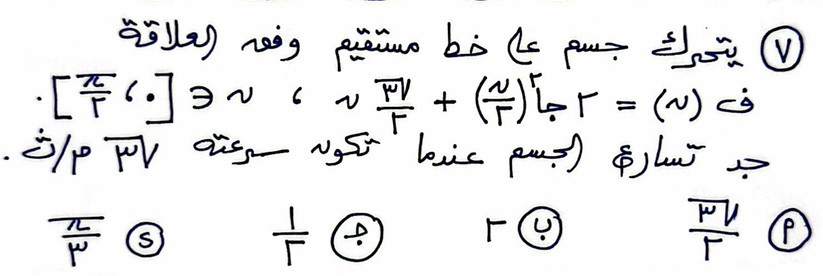 ٧ يتحرك جسم على خط مستقيم وفقه العلاقة
ف (ن) = ٢ جا٢(ن/٢) + √٣/٢ ن ، ن ∈ [٠، π/٢].
جد تسارع الجسم عندما تكون سرعته √٣ م/ث.
أ √٣/٢ ب ٢ ج ١/٢ د π/٣